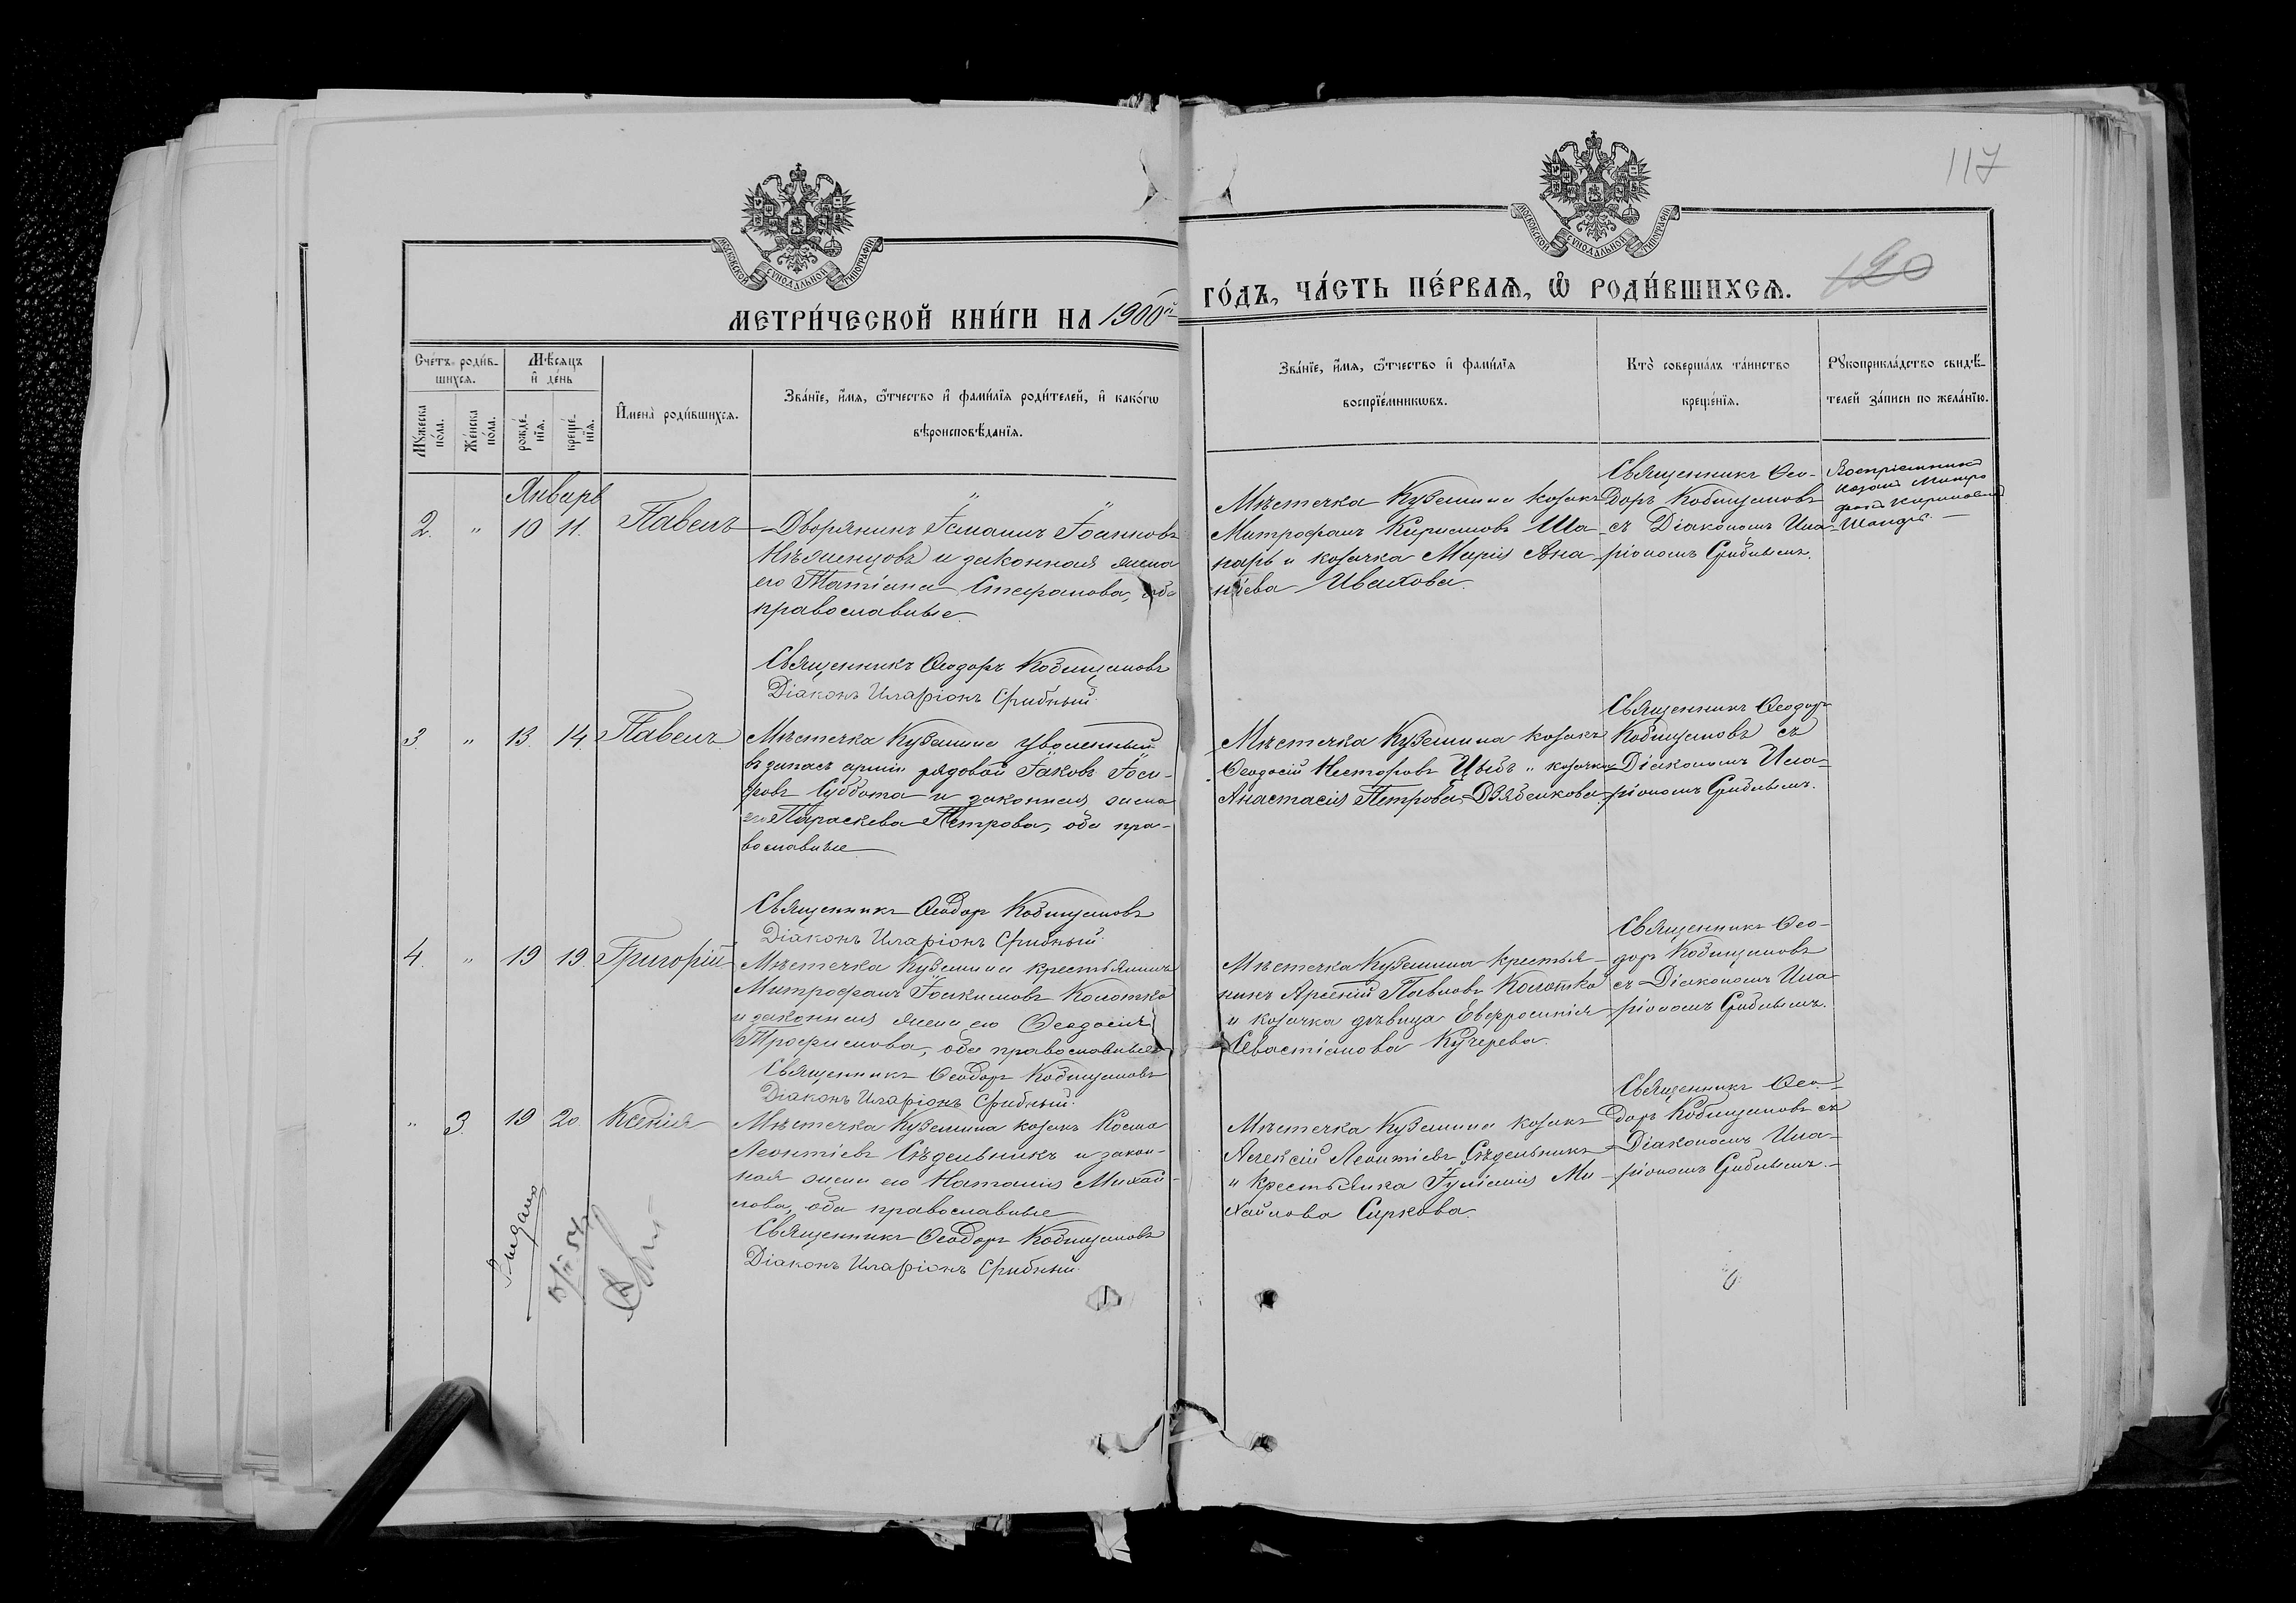 117
120
МОСКОВСКОЙ СѴНОДАЛЬНОЙ ТИПОГРАФІИ
МОСКОВСКОЙ СѴНОДАЛЬНОЙ ТИПОГРАФІИ
МЕТРИ́ЧЕСКОЙ КНИ́ГИ НА 1900й
ГО́ДЪ, ЧА́СТЬ ПЕ́РВАѦ, Ѡ҆ РОДИ́ВШИХСѦ.
Сче́тъ роди́в-
шихсѧ.
Мѣ́сѧцъ
и҆ де́нь
Мꙋ́жеска по́ла.
Же́нска по́ла.
рожде́-
нїѧ.
креще́-
нїѧ.
И҆мена̀ роди́вшихсѧ.
Зва́нїе, и҆́мѧ, ѻ҆́тчество и҆ фами́лїѧ роди́телей, и҆ како́гѡ
вѣроисповѣ́данїѧ.
Зва́нїе, и҆́мѧ, ѻ҆́тчество и҆ фами́лїѧ
воспрїе́мникѡвъ.
Кто̀ соверша́лъ та́инство
креще́нїѧ.
Рꙋкоприкла́дство свидѣ́-
телей за́писи по жела́нїю.
Январь
2. " 10 11. Павелъ
Дворянинъ Іоанновъ
и законная жена
его Татіана Стефанова, оба
православные.
Священникъ Ѳеодоръ Кобищановъ
Діаконъ Иларіонъ Срибный.
Мѣстечка Куземина козакъ
Митрофанъ Кириловъ Ша-
нарь и козачка Марія Ана-
ніева Ивахова.
Священникъ Ѳео-
доръ Кобищановъ
съ Діакономъ Ила-
ріономъ Срибнымъ.
Воспріемникъ
козакъ Митро
фанъ Кириловъ
3. " 13. 14 Павелъ
Мѣстечка Куземина уволенный
въ запасъ арміи рядовой Іаковъ Іоси-
фовъ Суббота и законная жена
его Параскева Петрова, оба пра-
вославные
Священникъ Ѳеодоръ Кобищановъ
Діаконъ Иларіонъ Срибный.
Мѣстечка Куземина козакъ
Ѳеодосій Несторовъ Цыбъ и козачка
Анастасія Петрова Дзябенкова.
Священникъ Ѳеодоръ
Кобищановъ съ
Діакономъ Ила-
ріономъ Срибнымъ.
4. " 19 19. Григорій
Мѣстечка Куземина крестьянинъ
Митрофанъ Іоакимовъ Колотко
и законная жена его Ѳеодосія
Трофимова, оба православные
Священникъ Ѳеодоръ Кобищановъ
Діаконъ Иларіонъ Срибный.
Мѣстечка Куземина крестья-
нинъ Арсеній Павловъ Колотко
и козачка дѣвица Евфросинія
Севастіанова Кучерева.
Священникъ Ѳео-
доръ Кобищановъ
съ Діакономъ Ила-
ріономъ Срибнымъ.
" 3. 19 20. Ксенія
Мѣстечка Куземина козакъ Косма
Леонтіевъ Сѣдельникъ и закон-
ная жена его Наталія Михай-
лова, оба православные
Священникъ Ѳеодоръ Кобищановъ
Діаконъ Иларіонъ Срибный.
Мѣстечка Куземина козакъ
Алексій Леонтіевъ Сѣдельникъ
и крестьянка Іуліанія Ми-
хайлова Сиркова.
Священникъ Ѳео-
доръ Кобищановъ съ
Діакономъ Ила-
ріономъ Срибнымъ.